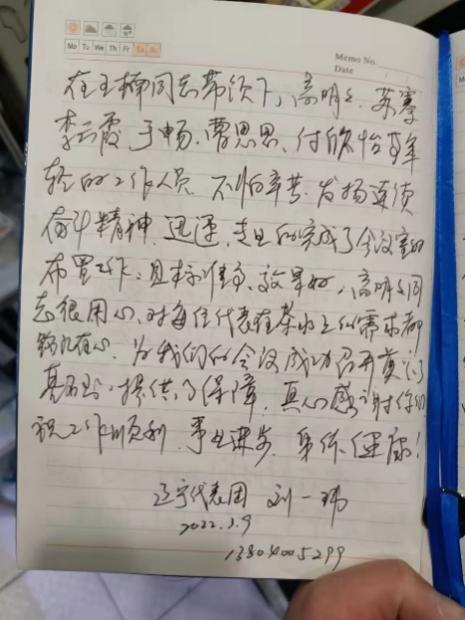 Mo Tu We Th Fr Sa Su
Memo No.
Date / /
在王楠同志带领下,高明 、苏骞
李云霞、于畅、曹思思、付欣怡等年
轻的工作人员,不怕辛苦,发扬连续
奋斗精神,迅速、 完成了会议室的
布置工作;且标准高、效果好,高明 同
志很用心,对每位代表在茶水上的需求都
铭记在心,为我们的会议成功召开奠定了
基础,提供了保障,真心感谢你们
祝工作顺利,事业进步,身体健康!
辽宁代表团 刘一玮
2022.3.9
13804005299